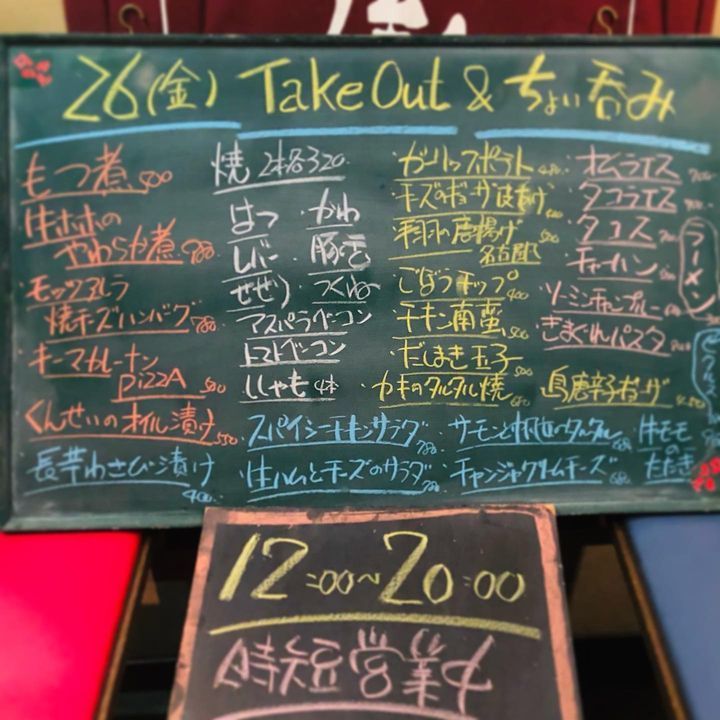 26(金) Take Out & ちょい呑み
もつ煮 500
牛ホホの
やわらか煮 980
モッツァレラ
焼チーズハンバーグ 780
キーマカレーナン
PIZZA 500
くんせいのオイル漬け 550
長芋わさび漬け
400
焼 2本各320
はつ ・かわ
レバー ・豚バラ
ぜせり ・つくね
アスパラベーコン
トマトベーコン
ししゃも 4本
スパイシーチキンサラダ 780
生ハムとチーズのサラダ 780
ガーリックポテト
チーズのギョーザ皮揚げ
手羽の唐揚げ 500
名古屋
ごぼうチップ 400
チキン南蛮 500
だしまき玉子 500
カキのタルタル焼 680
サーモンと
チャンジャクリームチーズ
・オムライス
・タコライス
・タコス
・チャーハン
・ソーミンチャンプルー
・きまぐれパスタ
島唐辛子ギョーザ 450
牛モモ
の
たたき
ラーメン
12:00~20:00
時短営業中